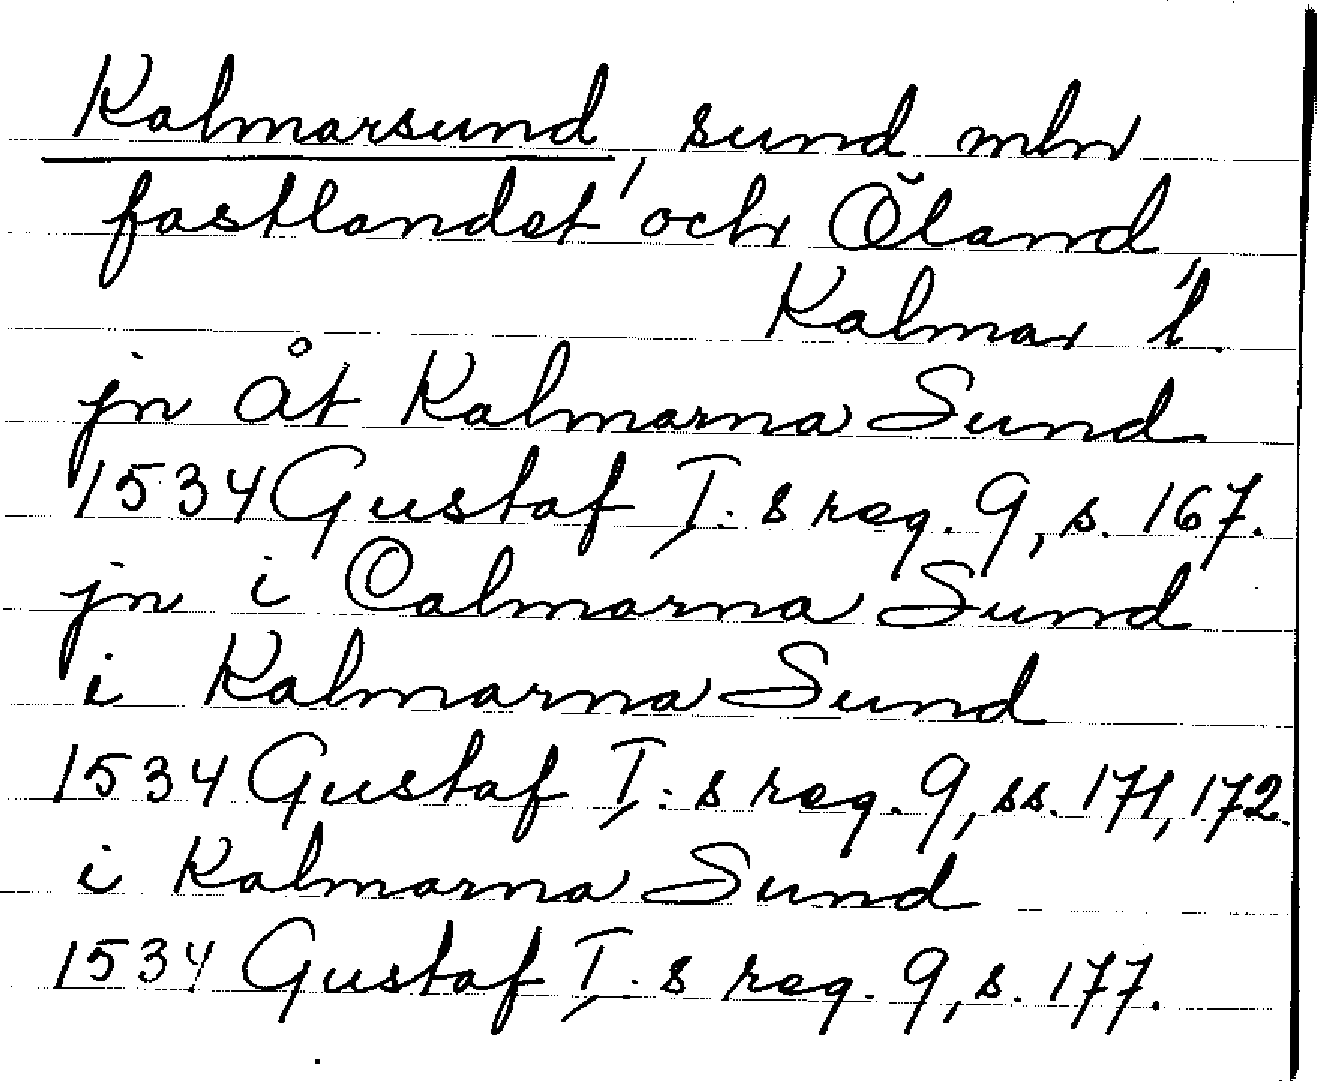 Kalmarsund, sund mln
fastlandet och Öland,
Kalmar l.
jn åt Kalmarna Sund
1534 Gustaf I:s reg. 9, s. 167.
jn i Calmarna Sund
i Kalmarna Sund
1534 Gustaf I:s reg. 9, ss. 171, 172.
i Kalmarna Sund
1534 Gustaf I:s reg. 9, s. 177.